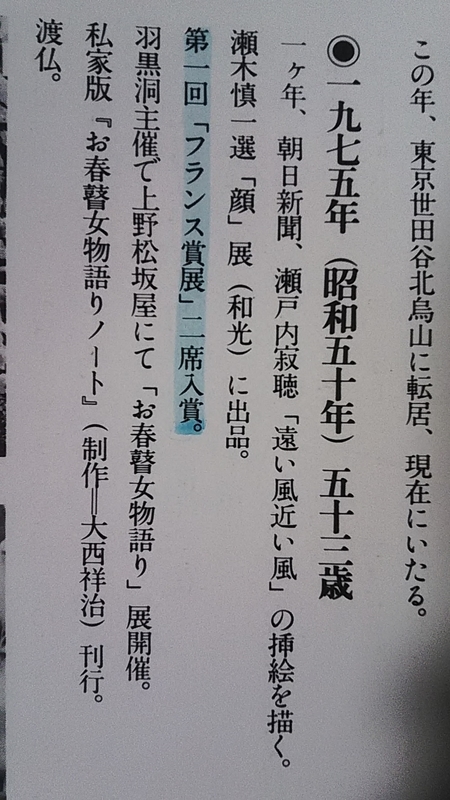 この年、東京世田谷北烏山に転居、現在にいたる。
◉一九七五年（昭和五十年）五十三歳
一ヶ年、朝日新聞、瀬戸内寂聴「遠い風近い風」の挿絵を描く。
瀬木慎一選「顔」展（和光）に出品。
第一回「フランス賞展」二席入賞。
羽黒洞主催で上野松坂屋にて「お春瞽女物語り」展開催。
私家版『お春瞽女物語りノート』（制作＝大西祥治）刊行。
渡仏。